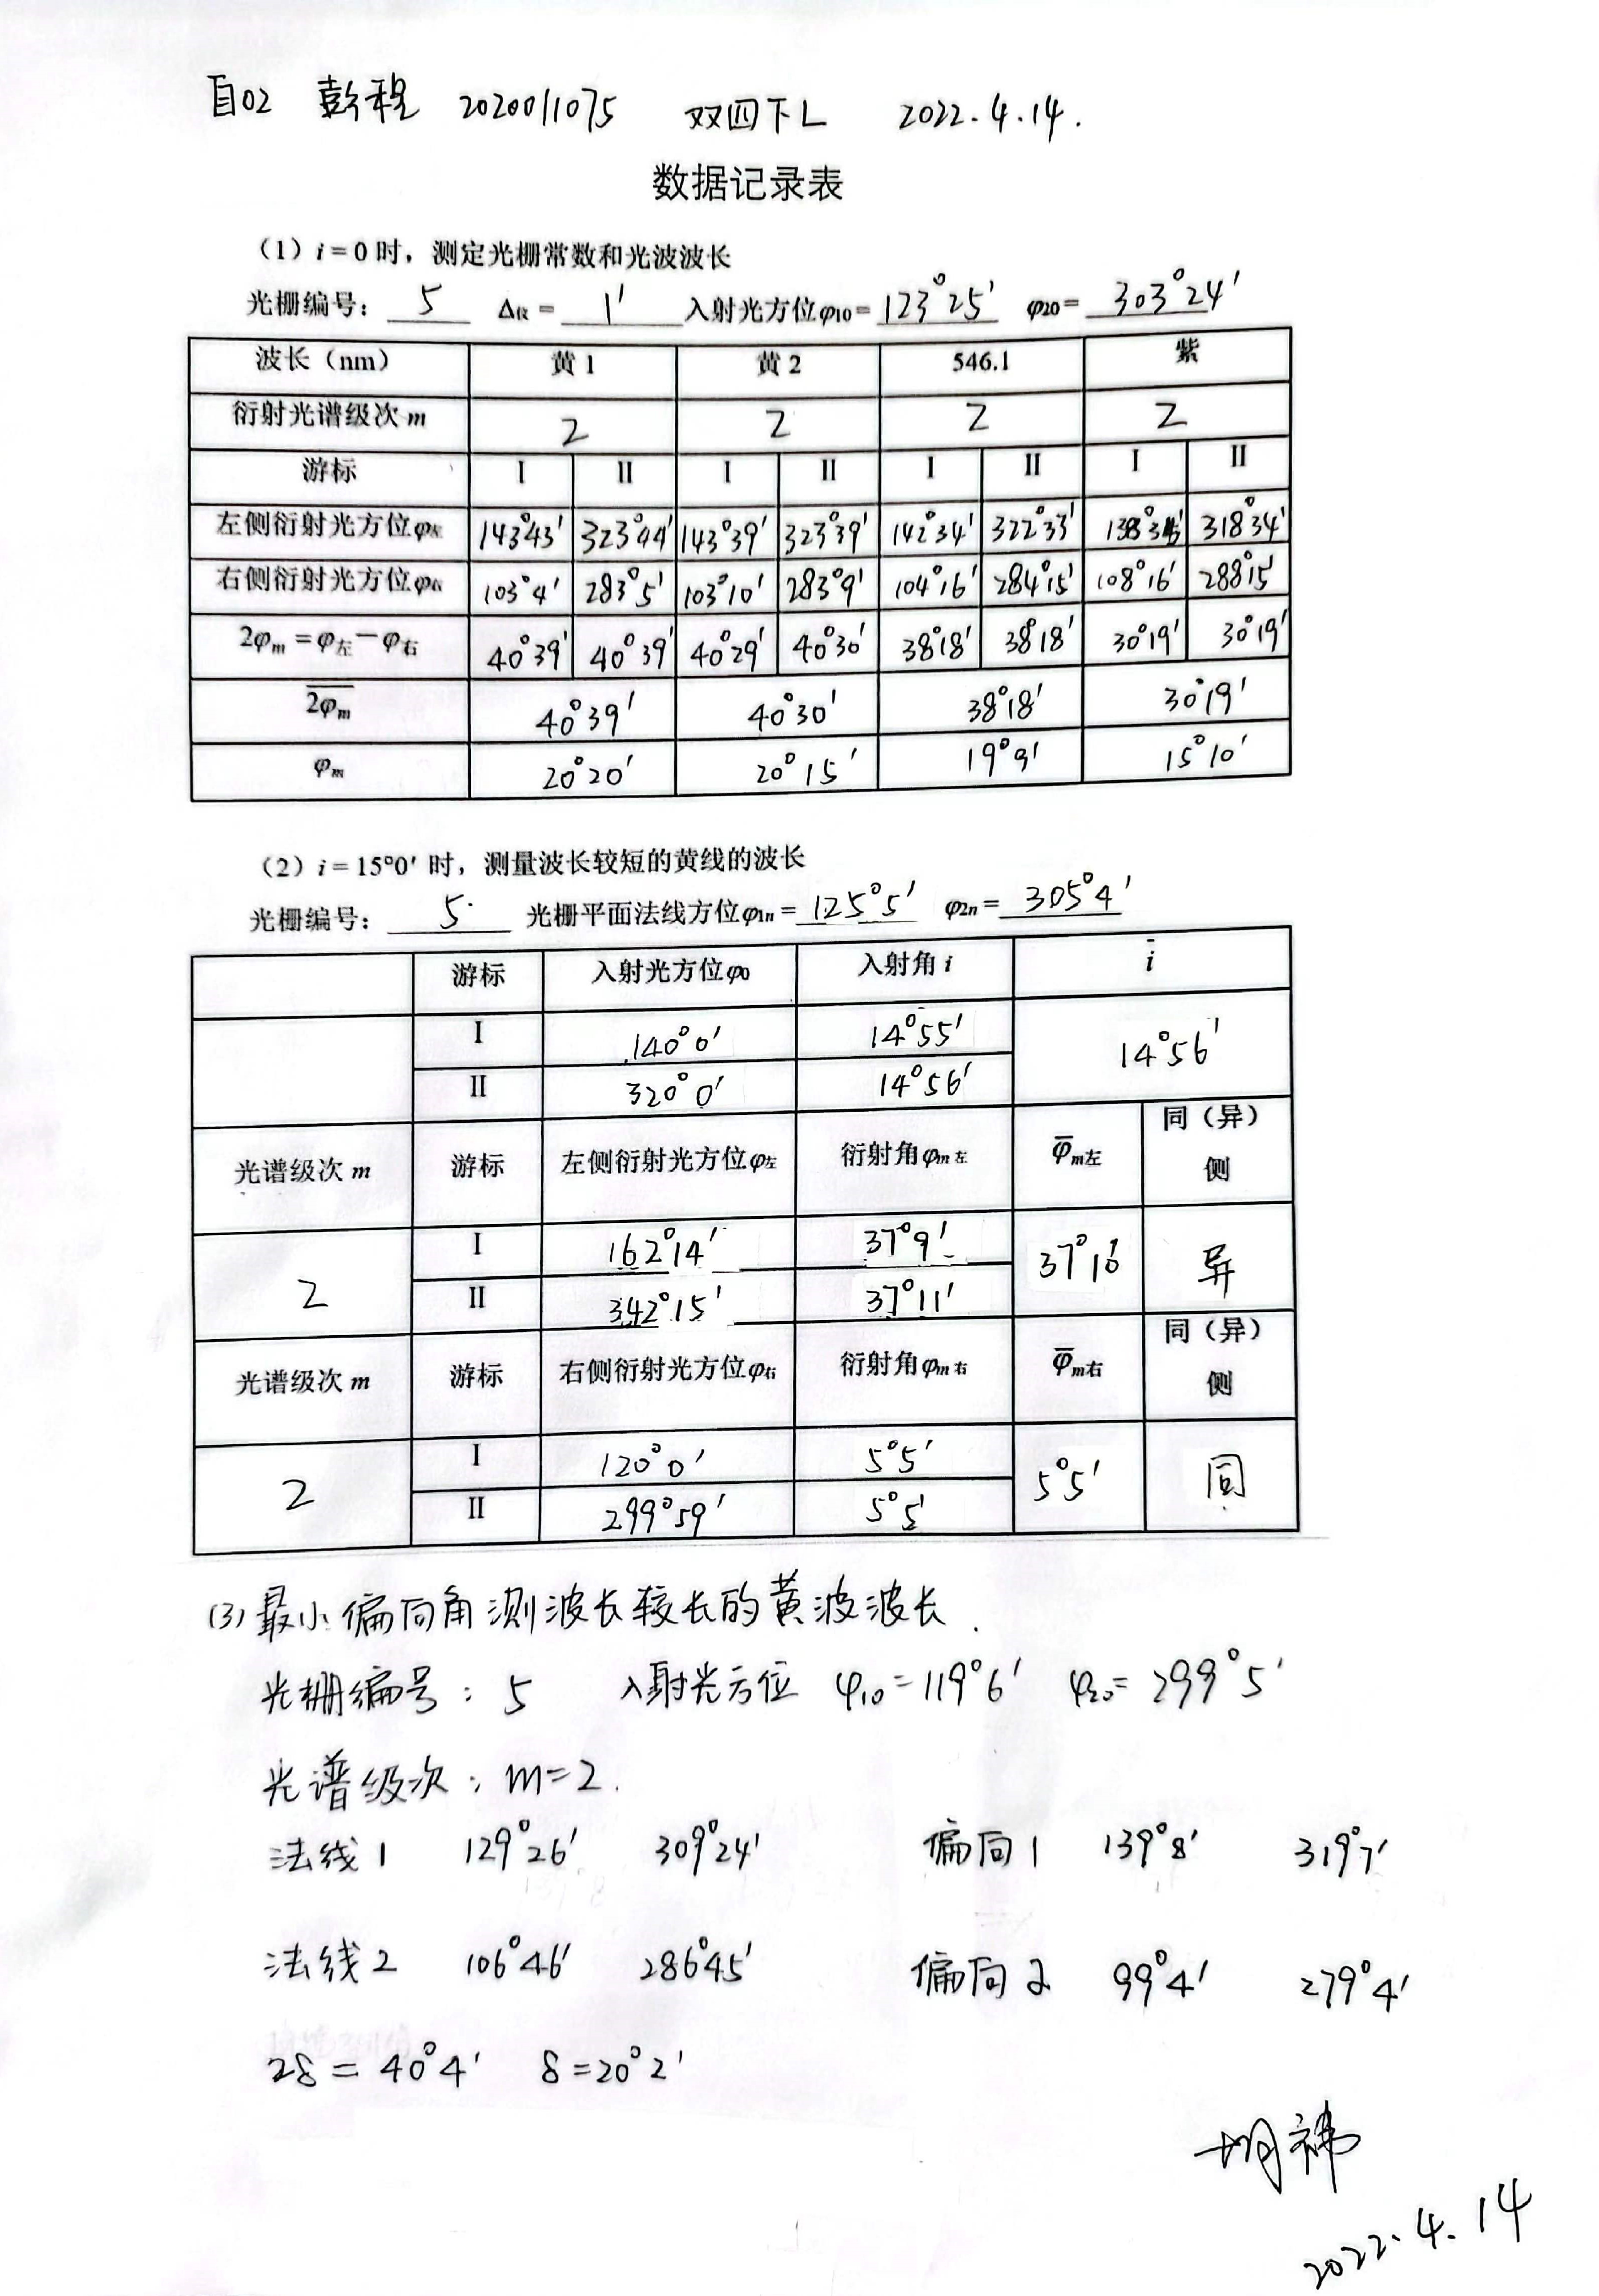 自02 彭程 2020011075 双四下L 2022.4.14.
数据记录表
(1) i = 0 时，测定光栅常数和光波波长
光栅编号： 5 Δ仪 = 1′ 入射光方位φ10= 123°25′ φ20= 303°24′
波长（nm） 黄1 黄2 546.1 紫
衍射光谱级次 m 2 2 2 2
游标 I II I II I II I II
左侧衍射光方位φ左 143°43′ 323°44′ 143°39′ 323°39′ 142°34′ 322°33′ 318°34′
右侧衍射光方位φ右 103°4′ 283°5′ 103°10′ 283°9′ 104°16′ 284°15′ 108°16′ 288°15′
2φm = φ左－φ右 40°39′ 40°39′ 40°29′ 40°30′ 38°18′ 38°18′ 30°19′ 30°19′
2φm 40°39′ 40°30′ 38°18′ 30°19′
φm 20°20′ 20°15′ 19°9′ 15°10′
(2) i = 15°0′ 时，测量波长较短的黄线的波长
光栅编号： 5 光栅平面法线方位φ1n = 125°5′ φ2n = 305°4′
游标 入射光方位φ0 入射角 i i
I 140°0′ 14°55′ 14°56′
II 320°0′ 14°56′
光谱级次 m 游标 左侧衍射光方位φ左 衍射角φm左 φm左 同（异）侧
2 I 162°14′ 37°9′ 37°10′ 异
II 342°15′ 37°11′
光谱级次 m 游标 右侧衍射光方位φ右 衍射角φm右 φm右 同（异）侧
2 I 120°0′ 5°5′ 5°5′ 同
II 299°59′ 5°5′
(3) 最小偏向角测波长较长的黄波波长.
光栅编号：5 入射光方位 φ10=119°6′ φ20=299°5′
光谱级次：m=2.
法线1 129°26′ 309°24′ 偏向1 139°8′ 319°7′
法线2 106°46′ 286°45′ 偏向2 99°4′ 279°4′
2δ = 40°4′ δ=20°2′
2022.4.14